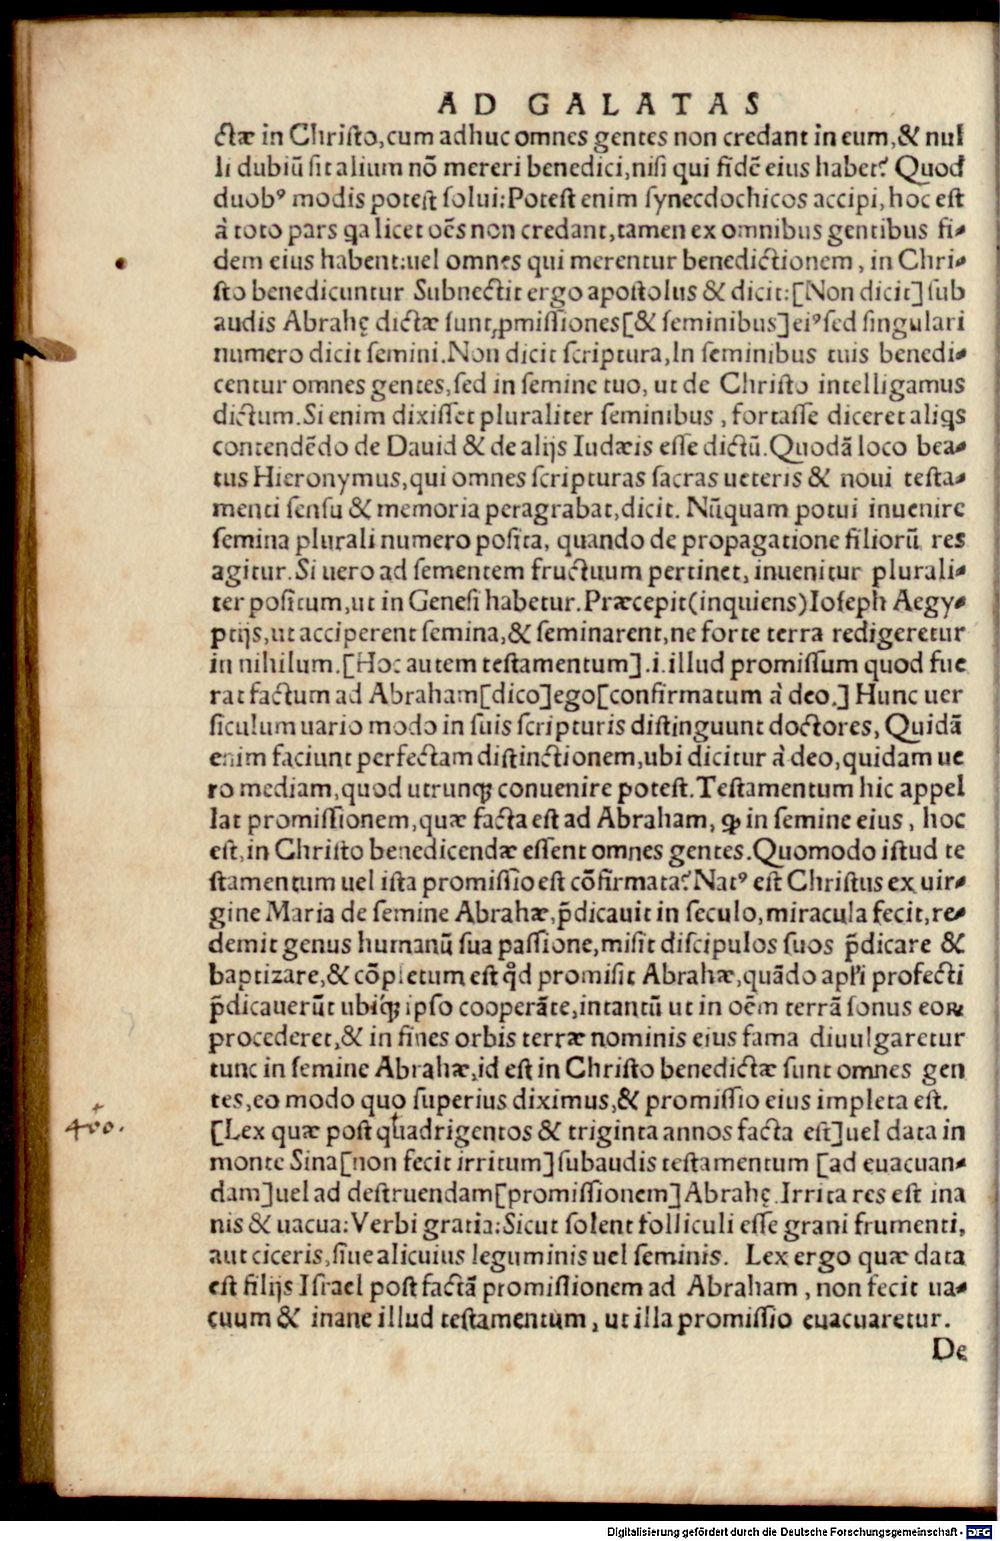 AD GALATAS
ctæ in Christo, cum adhuc omnes gentes non credant in eum, & nul
li dubiũ sit alium nõ mereri benedici, nisi qui fidẽ eius habet? Quod
duobꝰ modis potest solui: Potest enim synecdochicos accipi, hoc est
à toto pars qa licet oẽs non credant, tamen ex omnibus gentibus fi-
dem eius habent: uel omnes qui merentur benedictionem, in Chri-
sto benedicuntur Subnectit ergo apostolus & dicit: [Non dicit] sub
audis Abrahę dictæ sunt ꝓmissiones [& seminibus] eiꝰ sed singulari
numero dicit semini. Non dicit scriptura, In seminibus tuis benedi-
centur omnes gentes, sed in semine tuo, ut de Christo intelligamus
dictum. Si enim dixisset pluraliter seminibus, fortasse diceret aliqs
contendẽdo de Dauid & de alijs Iudæis esse dictũ. Quodã loco bea-
tus Hieronymus, qui omnes scripturas sacras ueteris & noui testa-
menti sensu & memoria peragrabat, dicit. Nũquam potui inuenire
semina plurali numero posita, quando de propagatione filiorũ res
agitur. Si uero ad sementem fructuum pertinet, inuenitur plurali-
ter positum, ut in Genesi habetur. Præcepit (inquiens) Ioseph Aegy-
ptijs, ut acciperent semina, & seminarent, ne forte terra redigeretur
in nihilum. [Hoc autem testamentum] .i. illud promissum quod fue
rat factum ad Abraham [dico] ego [confirmatum à deo.] Hunc uer
siculum uario modo in suis scripturis distinguunt doctores, Quidã
enim faciunt perfectam distinctionem, ubi dicitur à deo, quidam ue
ro mediam, quod utrunqꝫ conuenire potest. Testamentum hic appel
lat promissionem, quæ facta est ad Abraham, ꝙ in semine eius, hoc
est, in Christo benedicendæ essent omnes gentes. Quomodo istud te
stamentum uel ista promissio est cõfirmata? Natꝰ est Christus ex uir-
gine Maria de semine Abrahæ, p̃dicauit in seculo, miracula fecit, re-
demit genus humanũ sua passione, misit discipulos suos p̃dicare &
baptizare, & cõpletum est qđ promisit Abrahæ, quãdo apl'i profecti
p̃dicauerũt ubiqꝫ ipso cooperãte, intantũ ut in oẽm terrã sonus eoꝝ
procederet, & in fines orbis terræ nominis eius fama diuulgaretur
tunc in semine Abrahæ, id est in Christo benedictæ sunt omnes gen
tes, eo modo quo superius diximus, & promissio eius impleta est.
400.
[Lex quæ post quadrigentos & triginta annos facta est] uel data in
monte Sina [non fecit irritum] subaudis testamentum [ad euacuan-
dam] uel ad destruendam [promissionem] Abrahę. Irrita res est ina
nis & uacua: Verbi gratia: Sicut solent folliculi esse grani frumenti,
aut ciceris, siue alicuius leguminis uel seminis. Lex ergo quæ data
est filijs Israel post factã promissionem ad Abraham, non fecit ua-
cuum & inane illud testamentum, ut illa promissio euacuaretur.
De
Digitalisierung gefördert durch die Deutsche Forschungsgemeinschaft - DFG